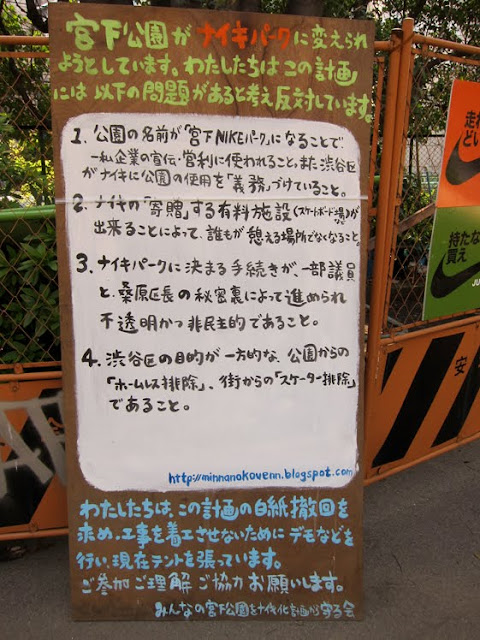 宮下公園がナイキパークに変えられ
ようとしています。わたしたちは この計画
には 以下の問題があると考え反対しています。
1. 公園の名前が「宮下NIKEパーク」になることで
一私企業の宣伝・営利に使われること。また渋谷区
がナイキに公園の使用を「義務」づけていること。
2. ナイキの「寄贈」する有料施設(スケートボード場)が
出来ることによって、誰もが憩える場所でなくなること。
3. ナイキパークに決まる手続きが、一部議員
と、桑原区長の秘密裏によって進められ
不透明かつ非民主的であること。
4. 渋谷区の目的が一方的な、公園からの
「ホームレス排除」、街からの「スケーター排除」
であること。
http://minnanokouenn.blogspot.com
わたしたちは、この計画の白紙撤回を
求め、工事を着工させないためにデモなどを
行い、現在テントを張っています。
ご参加 ご理解 ご協力 お願いします。
みんなの宮下公園をナイキ化計画から守る会
走れ
どい
持たな
買え
JU
安